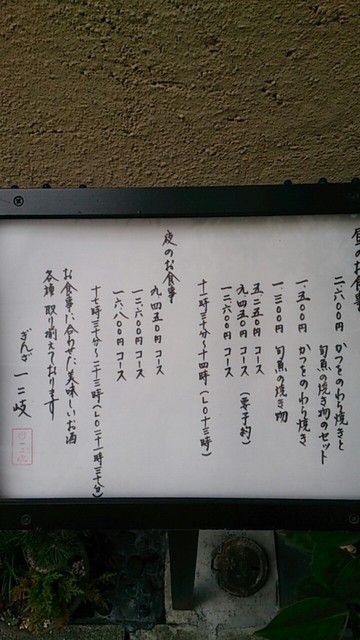 昼のお食事
二.六〇〇 かつをのわら焼きと
旬魚の焼き物のセット
一.五〇〇 かつをのわら焼き
一.三〇〇 旬魚の焼き物
五.二五〇円コース
九.四五〇円コース (要予約)
一二.六〇〇円コース
十一時三十分〜十四時(LO十三時)
夜のお食事
九.四五〇円コース
一二.六〇〇円コース
一六.八〇〇円コース
十七時三十分〜二十三時(LO二十一時三十分)
お食事に合わせた美味しいお酒
各種取り揃えております
ぎんざ 一二岐